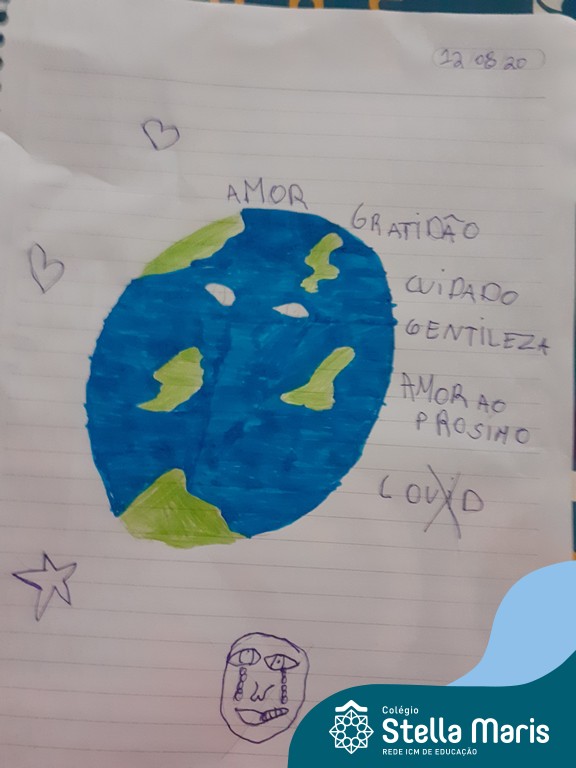 12 08 20
AMOR
GRATIDÃO
CUIDADO
GENTILEZA
AMOR AO
PROSIMO
COVID
Colégio
Stella Maris
REDE ICM DE EDUCAÇÃO